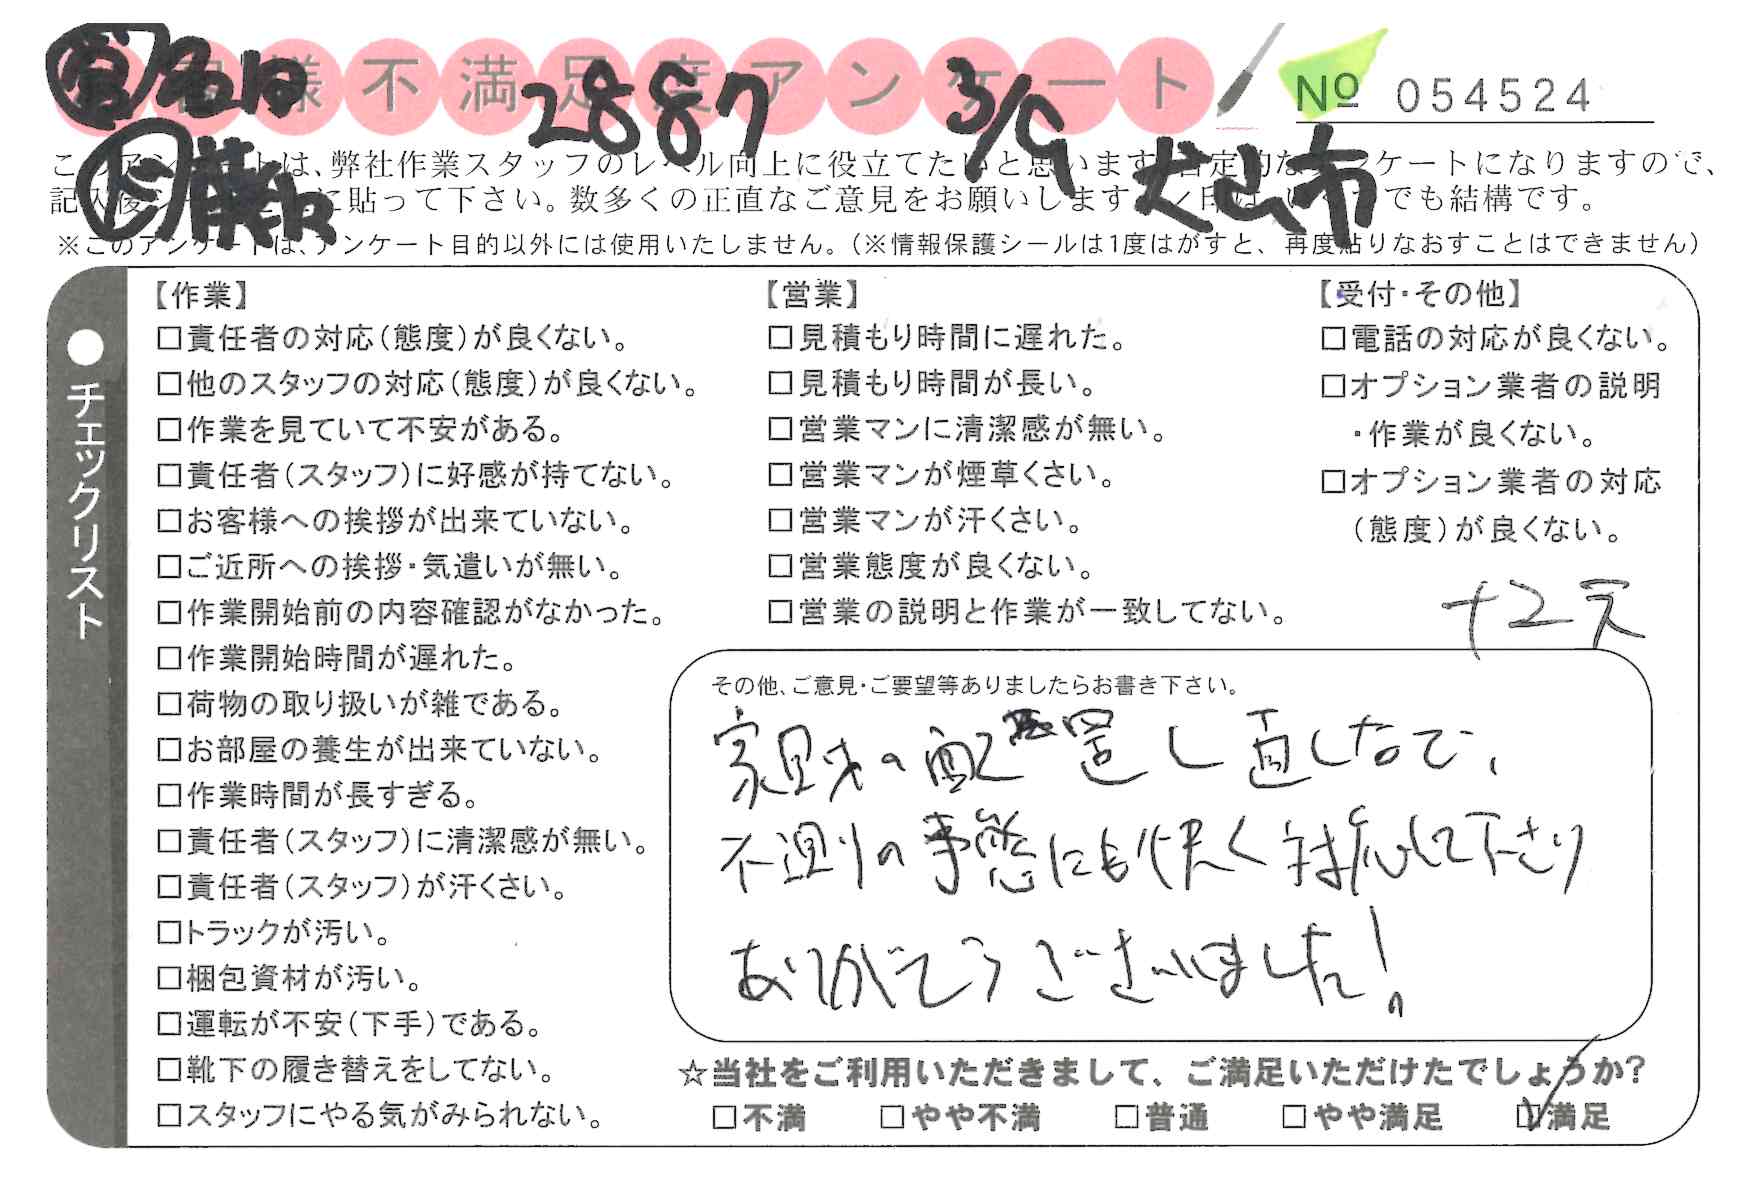 様不満足度アンケート
2887 3/9
№ 054524
犬山市
※このアンケートは、アンケート目的以外には使用いたしません。（※情報保護シールは1度はがすと、再度貼りなおすことはできません）
●チェックリスト
【作業】
□責任者の対応（態度）が良くない。
□他のスタッフの対応（態度）が良くない。
□作業を見ていて不安がある。
□責任者（スタッフ）に好感が持てない。
□お客様への挨拶が出来ていない。
□ご近所への挨拶・気遣いが無い。
□作業開始前の内容確認がなかった。
□作業開始時間が遅れた。
□荷物の取り扱いが雑である。
□お部屋の養生が出来ていない。
□作業時間が長すぎる。
□責任者（スタッフ）に清潔感が無い。
□責任者（スタッフ）が汗くさい。
□トラックが汚い。
□梱包資材が汚い。
□運転が不安（下手）である。
□靴下の履き替えをしてない。
□スタッフにやる気がみられない。
【営業】
□見積もり時間に遅れた。
□見積もり時間が長い。
□営業マンに清潔感が無い。
□営業マンが煙草くさい。
□営業マンが汗くさい。
□営業態度が良くない。
□営業の説明と作業が一致してない。
【受付・その他】
□電話の対応が良くない。
□オプション業者の説明
・作業が良くない。
□オプション業者の対応
（態度）が良くない。
その他、ご意見・ご要望等ありましたらお書き下さい。
家具の配置し直しなので、
不測の事態にも快く対応して下さり
ありがとうございました！
☆当社をご利用いただきまして、ご満足いただけたでしょうか？
□不満 □やや不満 □普通 □やや満足 ☑満足